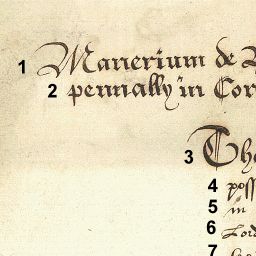 1 Manerium de
2 pennally in Cor
3 Tho
4 poss
5 in
6 Lord
7